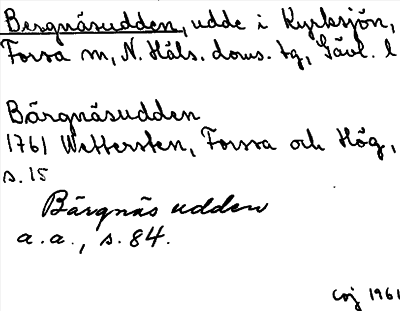 Bergnäsudden, udde i Kyrksjön,
Forsa sn, N. Häls. doms. tg, Gävl. l
Bärgnäsudden
1761 Wettersten, Forssa och Hög,
s. 15
Bärgnäs udden
a.a., s. 84.
1961